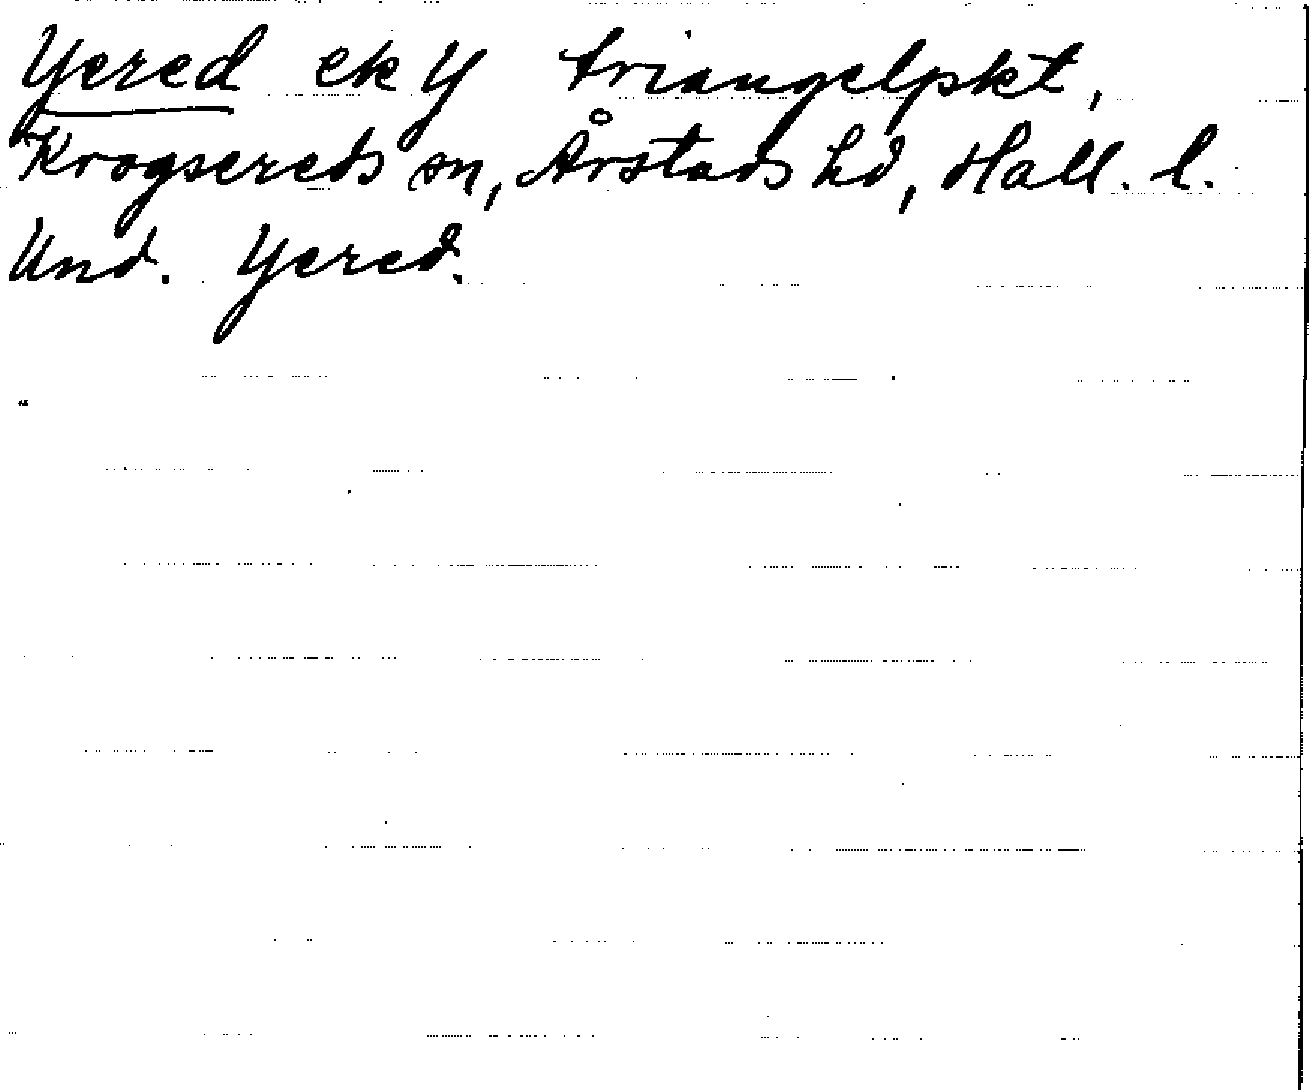 Yered ek Y triangelpkt,
Krogsereds sn, Årstads hd, Hall. l.
Und. Yered.